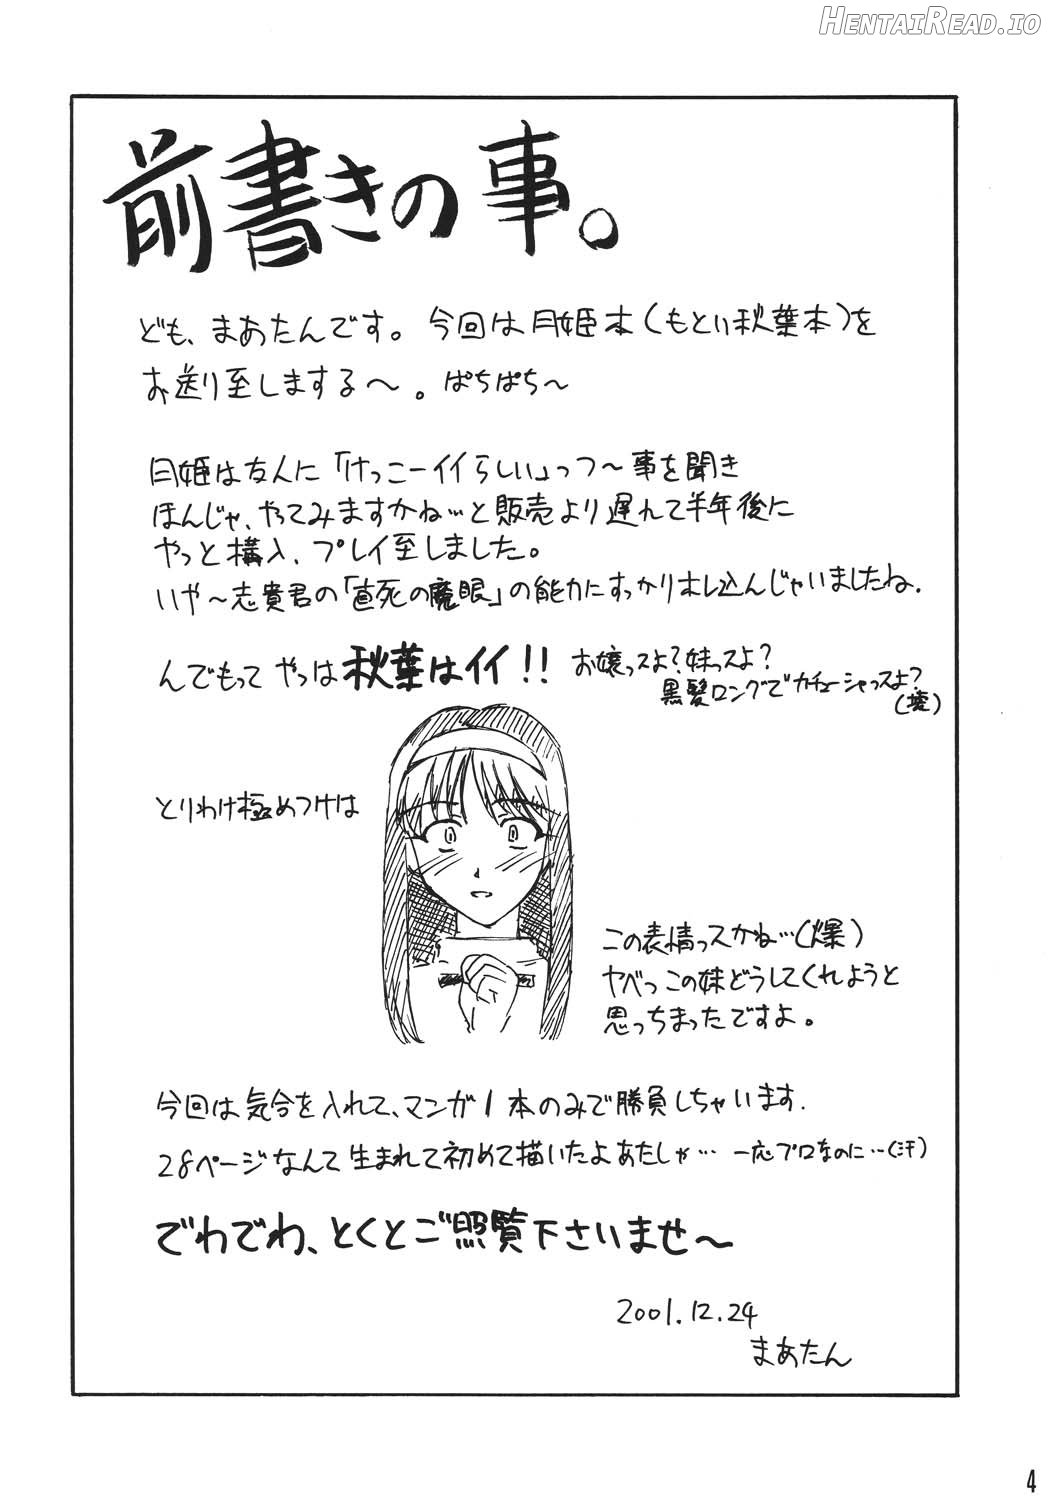 HENTAIREAD.IO
前書きの事。
ども、まあたんです。今回は月姫本(もとい秋葉本)を
お送り至しまする〜。ぱちぱち〜
月姫は友人に「けっこーイイらしい」っつ〜事を聞き
ほんじゃ、やってみますかね…と販売より遅れて半年後に
やっと構入、プレイ至しました。
いや〜志貴君の「直死の魔眼」の能力にすっかりホレ込んじゃいましたね.
んでもって やっは 秋葉はイイ!! お嬢っスよ?妹っスよ?
黒髪ロングでカチューシャっスよ?
(壊)
とりわけ極めつけは
この表情っスかね…(爆)
ヤベっこの妹どうしてくれようと
思っちまったですよ。
今回は気合を入れて、マンガ1本のみで勝負しちゃいます.
28ページなんて生まれて初めて描いたよあたしゃ… 一応プロなのに…(汗)
でわでわ、とくとご照覧下さいませ〜
2001.12.24
まあたん
4